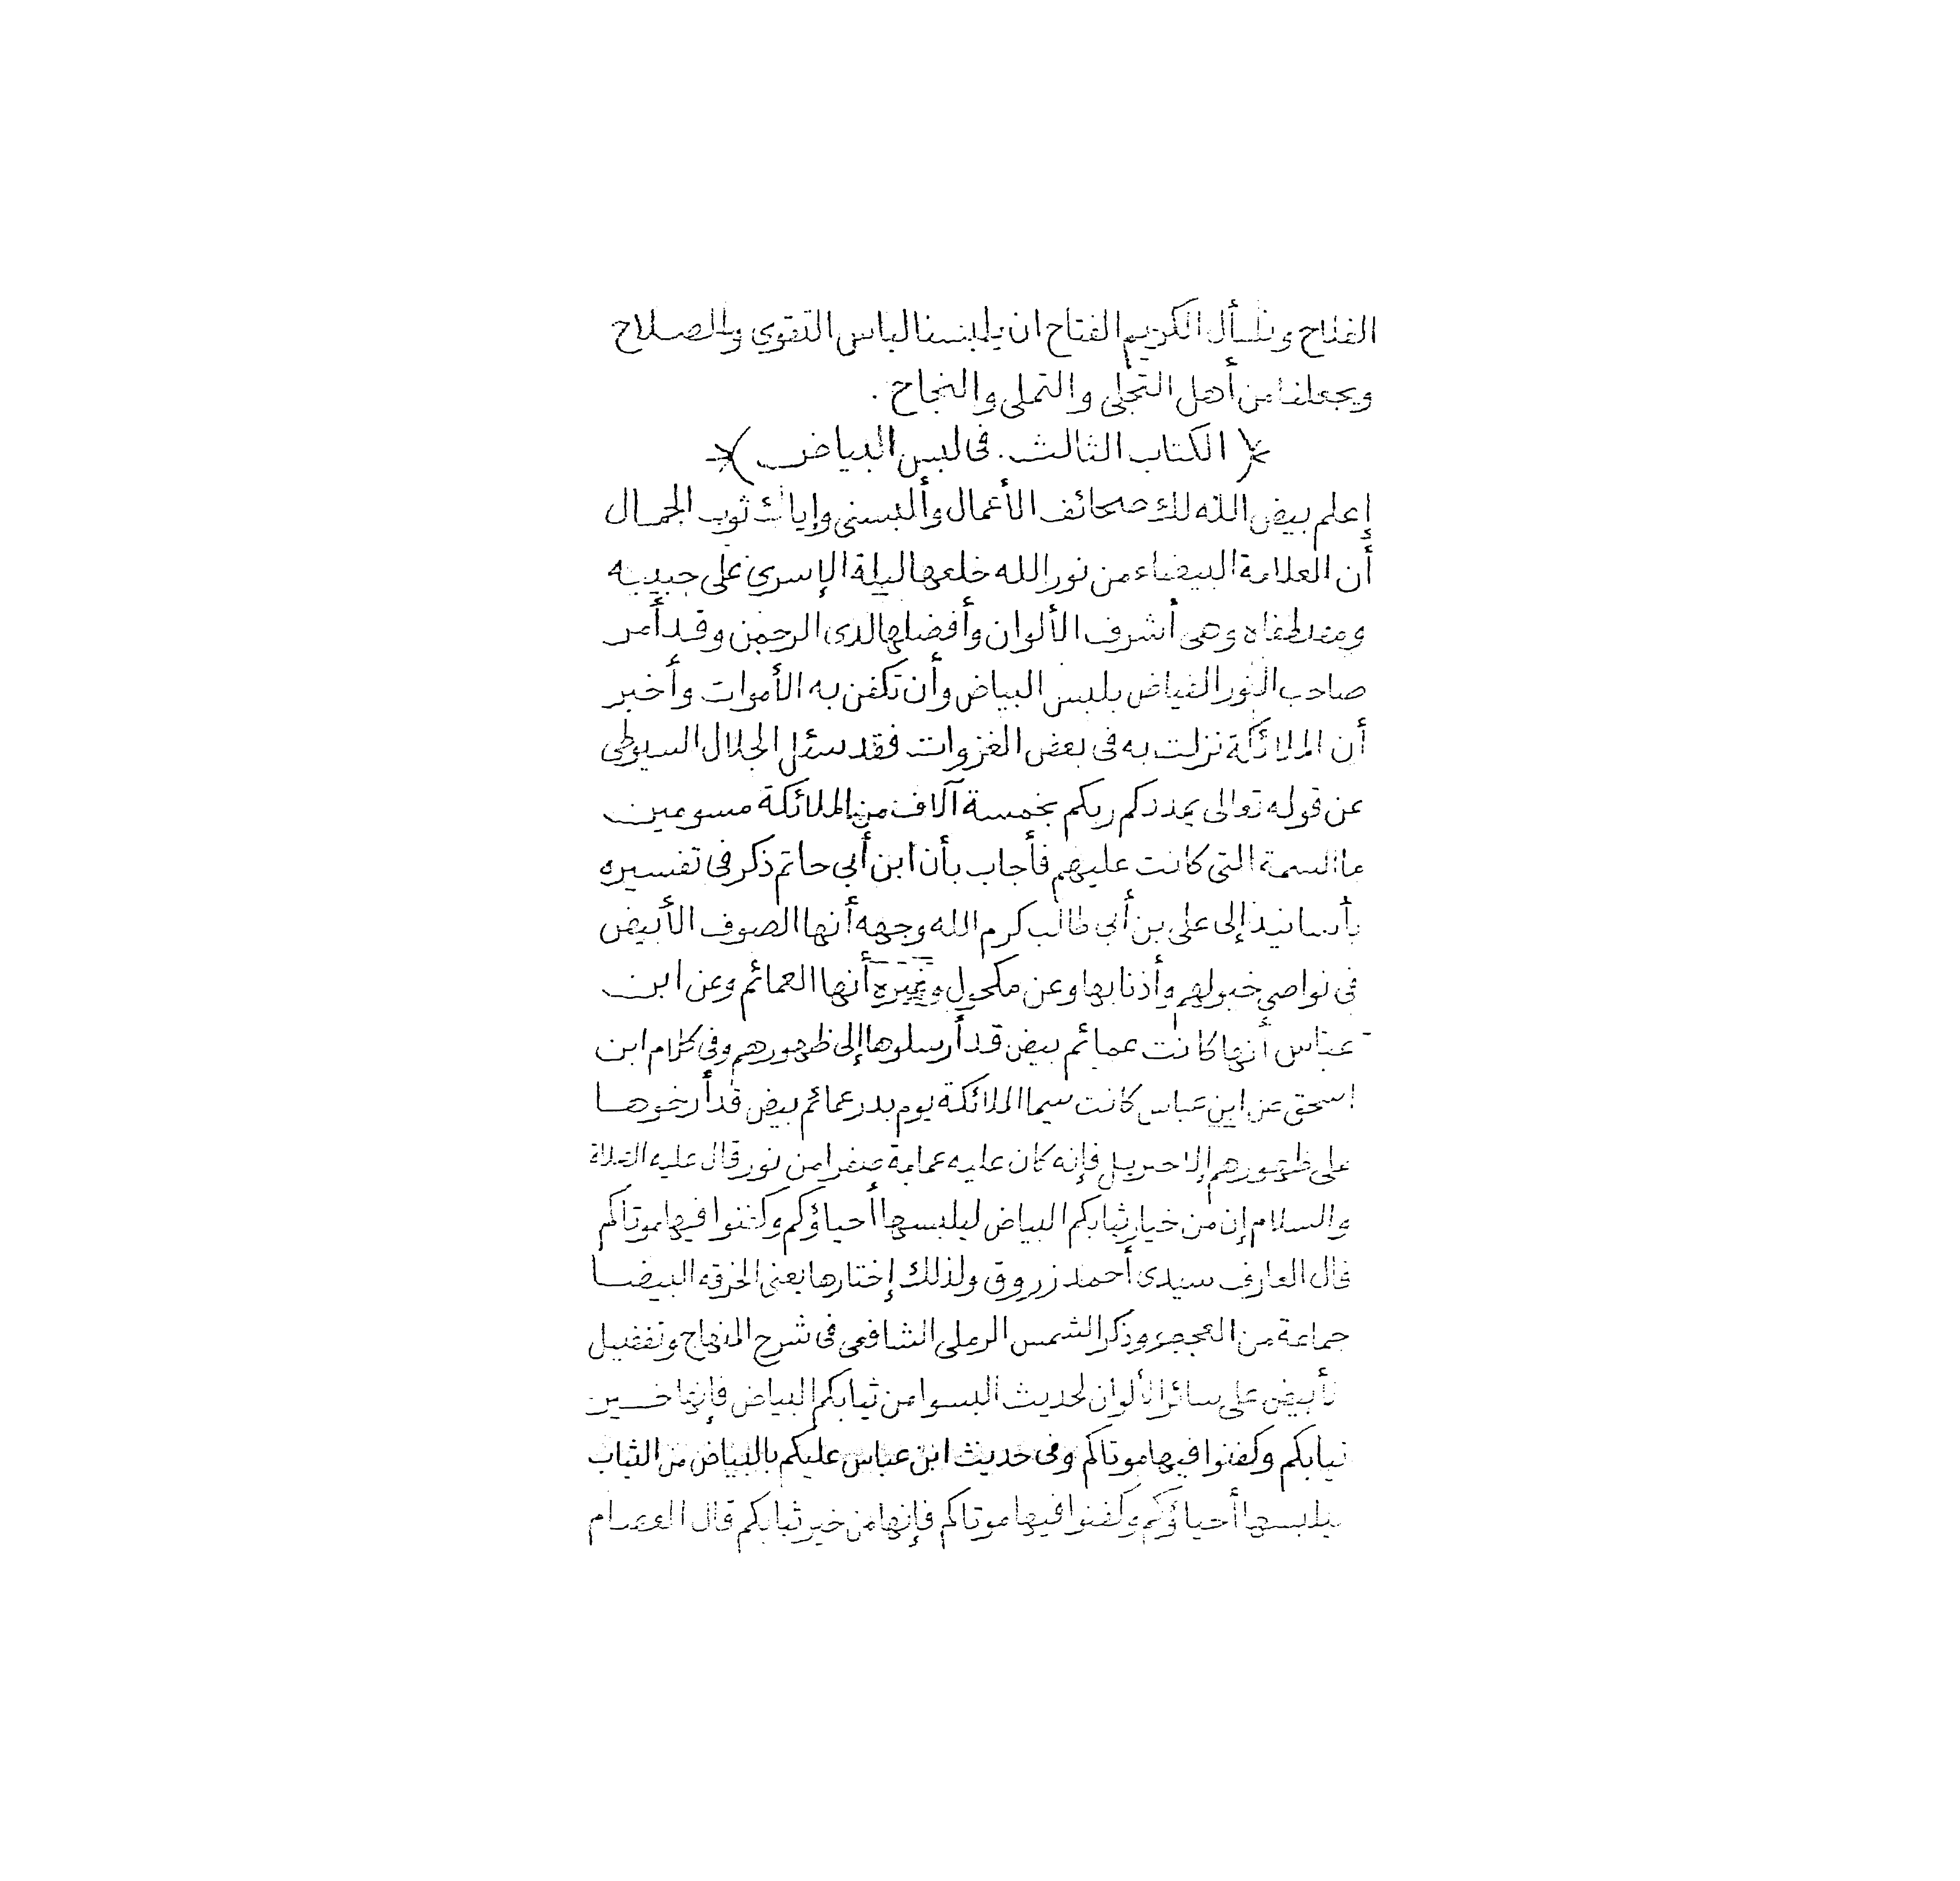 الفلاح ونسأل الكريم الفتاح ان يلبسنا لباس التقوى والصلاح
ويجعلنا من أهل التجلى والتملى والنجاح .
﴿ الكتاب الثالث . فى لبس البياض ﴾
إعلم بيض الله لك صحائف الأعمال وألبسنى وإياك ثوب الجمال
أن العلامة البيضاء من نور الله خلعها ليلة الإسرى على حبيبه
ومصطفاه وهى أشرف الألوان وأفضلها لدى الرحمن وقد أمر
صاحب النور الفياض بلبس البياض وأن تكفن به الأموات وأخبر
أن الملائكة نزلت به فى بعض الغزوات فقد سئل الجلال السيوطى
عن قوله توالى يمددكم ربكم بخمسة آلاف من الملائكة مسومين
ما السمة التى كانت عليهم فأجاب بأن ابن أبي حاتم ذكر فى تفسيره
بأسانيد إلى على بن أبى طالب كرم الله وجهه أنها الصوف الأبيض
فى نواصي خيولهم وأذنابها وعن مكحول وغيره أنها العمائم وعن ابن
عباس أنها كانت عمائم بيض قد أرسلوها إلى ظهورهم وفى كلام ابن
اسحق عن ابن عباس كانت سيما الملائكة يوم بدر عمائم بيض قد أرخوها
على ظهورهم إلا جبريل فإنه كان عليه عمامة صفرا من نور قال عليه الصلاة
والسلام إن من خيار ثيابكم البياض ليلبسها أحياؤكم وكفنوا فيها موتاكم
قال العارف سيدى أحمد زروق ولذلك إختارها يعنى الخرقه البيضا
جماعة من وذكر الشمس الرملى الشافعى فى شرح المنهاج وتفضيل
الأبيض على سائر الألوان لحديث البسوا من ثيابكم البياض فإنها خير
ثيابكم وكفنوا فيها موتاكم وفى حديث ابن عباس عليكم بالبياض من الثياب
ليلبسها أحياؤكم وكفنوا فيها موتاكم فإنها من خير ثيابكم قال العصام